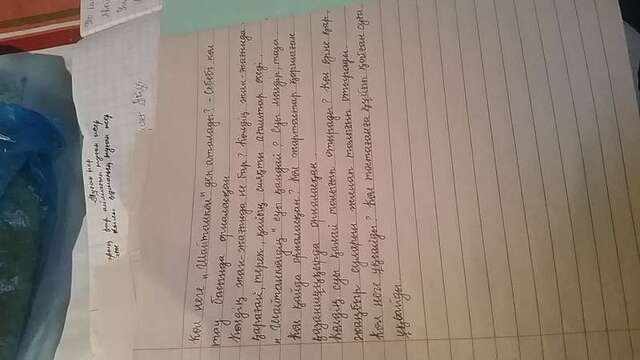 Туған жер
туған жер
Көл неге „Шайтанкөл" ден аталады? - Себебі көл
тау басында орналасқан
Көлдің жан-жағында не бар? Көлдің жан-жағында
қарағай, терек, қайың сияқты ағаштар өседі
„Шайтанкөлдің" суы қандай? Суы мөлдір, таза
Көл қайда орналасқан? Көл жартастар қоршаған
қазаншұңқырда орналасқан
Көлдің суы қалай толығып отырады? Көл еріне қар,
жаңбыр суларын жинап толығып отырады.
Көл неге ұқсайды? Көл тостағанға құйып қойған суға
ұқсайды